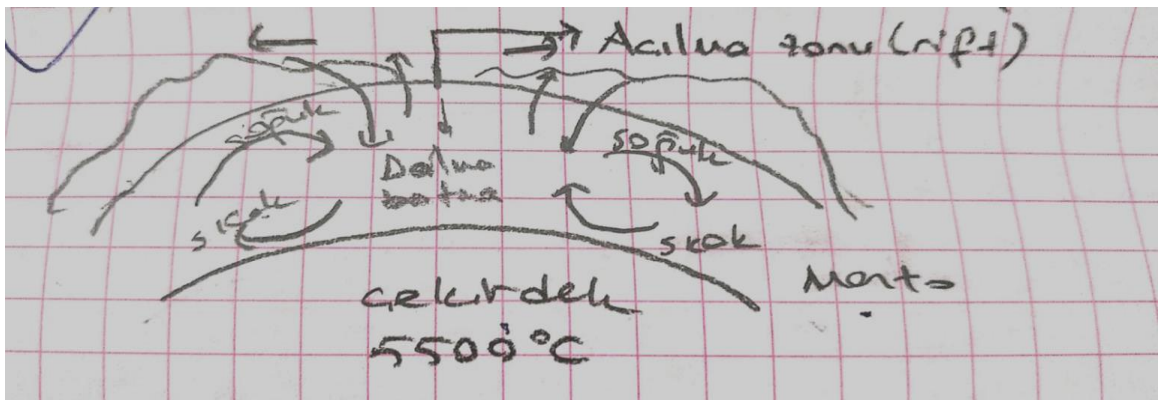 Acılma zonu (rift)
soğuk
soğuk
Dalma
batma
sıcak
sıcak
Manto
çekirdek
5500°C